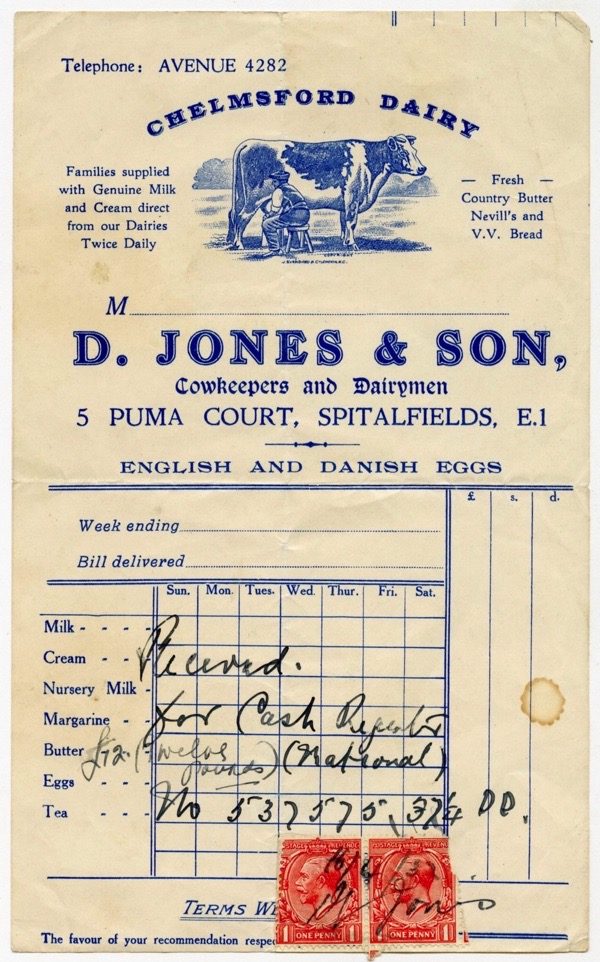 Telephone: AVENUE 4282
CHELMSFORD DAIRY
Families supplied
with Genuine Milk
and Cream direct
from our Dairies
Twice Daily
— Fresh —
Country Butter
Nevill's and
V.V. Bread
COPYRIGHT
M
D. JONES & SON,
Cowkeepers and Dairymen
5 PUMA COURT, SPITALFIELDS, E.1
ENGLISH AND DANISH EGGS
£ s. d.
Week ending
Bill delivered
Sun. Mon. Tues. Wed. Thur. Fri. Sat.
Milk - - - -
Cream - - -
Received.
Nursery Milk -
Margarine - -
for Cash Register
Butter
£12. (Twelve pounds) (National)
Eggs - - -
Tea - - -
No 537575. 374 DD.
POSTAGE REVENUE POSTAGE REVENUE
16/6/32
Jones
1 ONE PENNY 1 1 ONE PENNY 1
TERMS WE
The favour of your recommendation respec